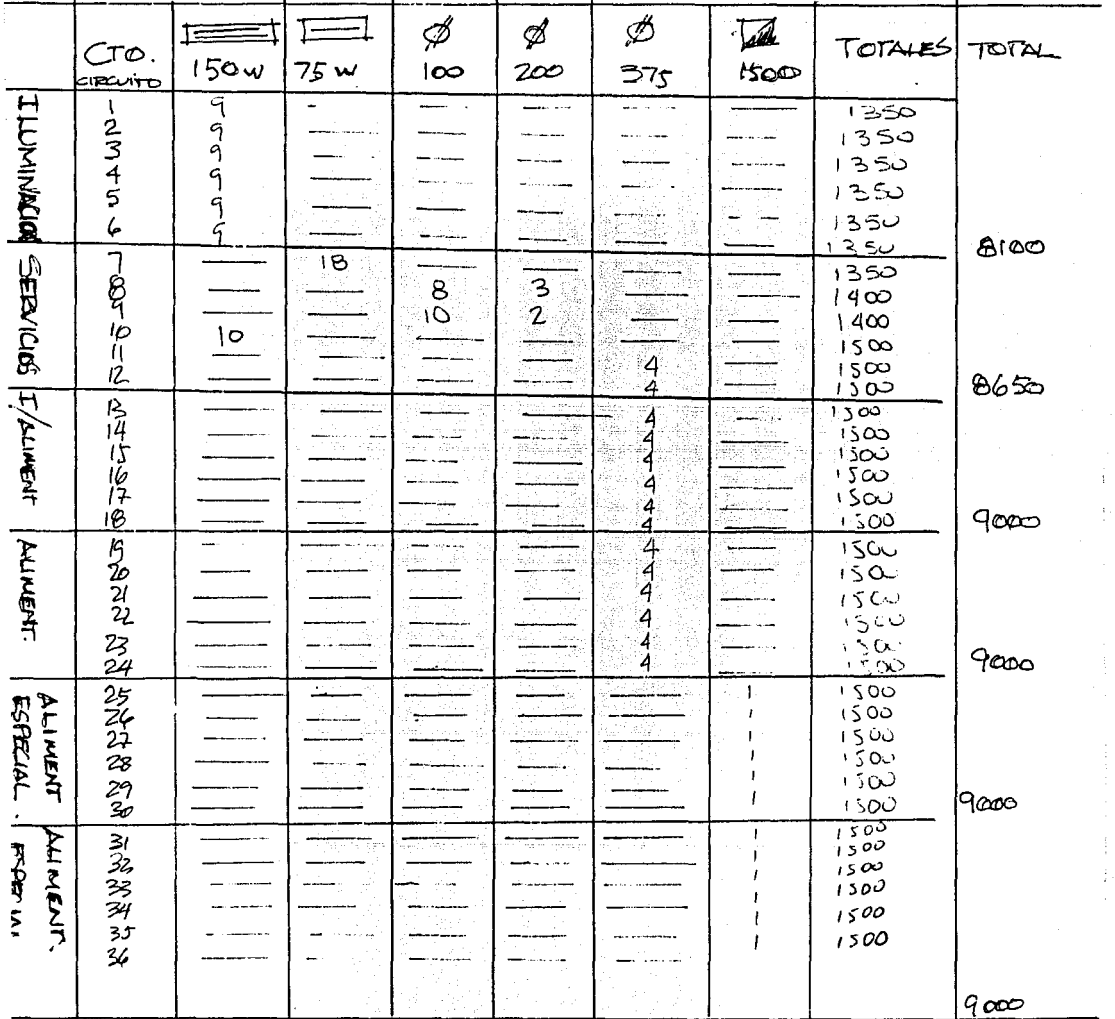 CTO. CIRCUITO 150w 75w Ø 100 Ø 200 Ø 375 1500 TOTALES TOTAL
ILUMINACION
1 9 - — — — — 1350
2 9 — — — — — 1350
3 9 — — — — — 1350
4 9 — — — — — 1350
5 9 — — — — — 1350
6 9 — — — — — 1350
8100
SERVICIOS
7 — 18 — — — — 1350
8 — — 8 3 — — 1400
9 — — 10 2 — — 1400
10 10 — — — — — 1500
11 — — — — 4 — 1500
12 — — — — 4 — 1500
8650
I/ALIMENT
13 — — — — 4 — 1500
14 — — — — 4 — 1500
15 — — — — 4 — 1500
16 — — — — 4 — 1500
17 — — — — 4 — 1500
18 — — — — 4 — 1500
9000
ALIMENT.
19 — — — — 4 — 1500
20 — — — — 4 — 1500
21 — — — — 4 — 1500
22 — — — — 4 — 1500
23 — — — — 4 — 1500
24 — — — — 4 — 1500
9000
ALIMENT
ESPECIAL.
25 — — — — — 1 1500
26 — — — — — 1 1500
27 — — — — — 1 1500
28 — — — — — 1 1500
29 — — — — — 1 1500
30 — — — — — 1 1500
9000
ALIMENT.
31 — — — — — 1 1500
32 — — — — — 1 1500
33 — — — — — 1 1500
34 — — — — — 1 1500
35 — — — — — 1 1500
36 — — — — — 1 1500
9000